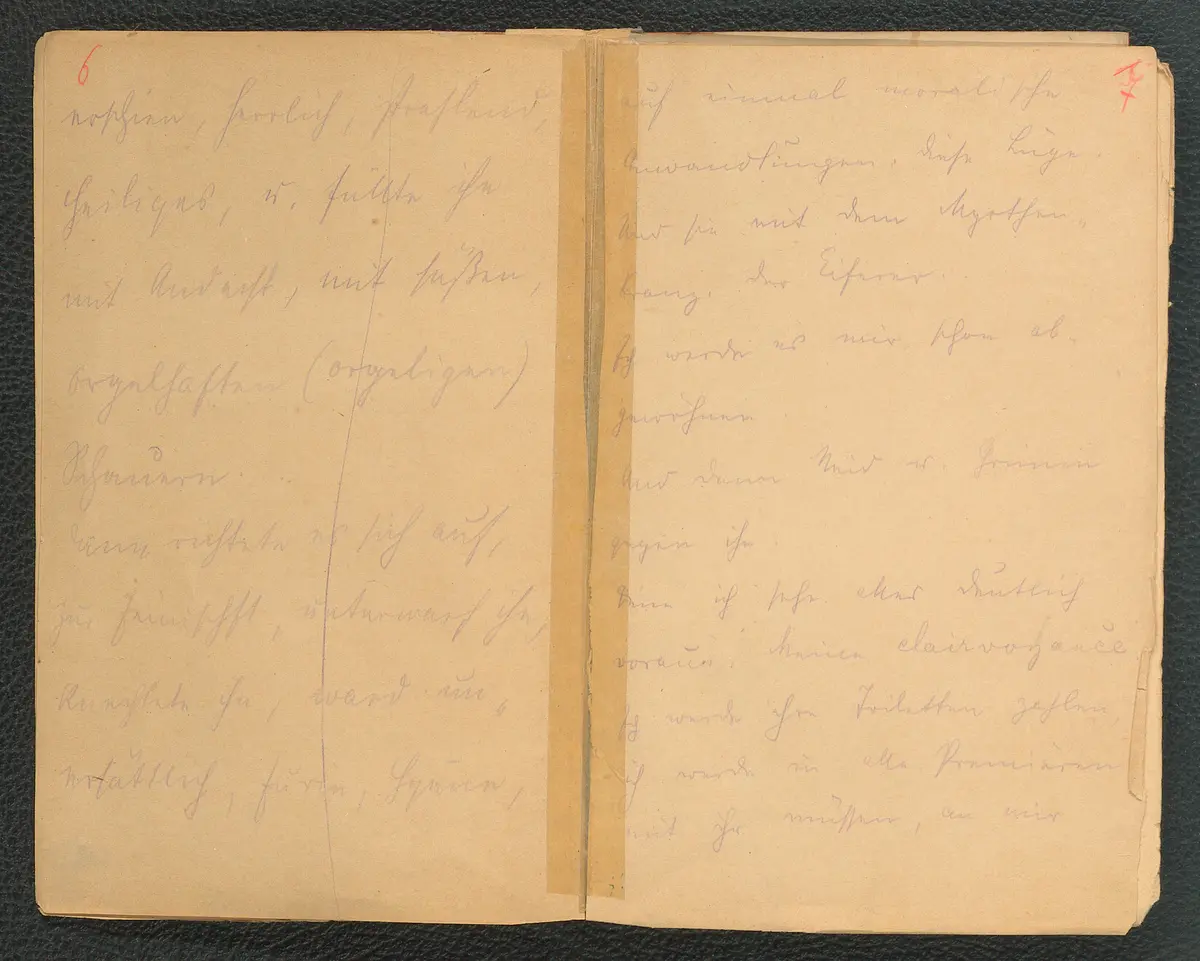 6
erschien, herrlich, strahlend,
heiliges, u. füllte ihn
mit Andacht, mit süßen,
orgelhaften (orgeligen)
Schauern.
Dann richtete es sich auf,
zur, unterwarf ihn,
knechtete ihn, ward un-
ersättlich, Furie, Hyäne,
7
auf einmal moralische
Anwandlungen. Diese Lüge.
Und sie mit dem Myrthen-
kranz. Der Eiferer.
Ich werde es mir schon ab-
gewöhnen
Und dann Neid u. Grimm
gegen ihn.
Denn ich sehe alles deutlich
voraus. Meine clairvoyance
Ich werde ihre Toiletten zahlen,
ich werde in alle Premièren
mit ihr müssen, an mir